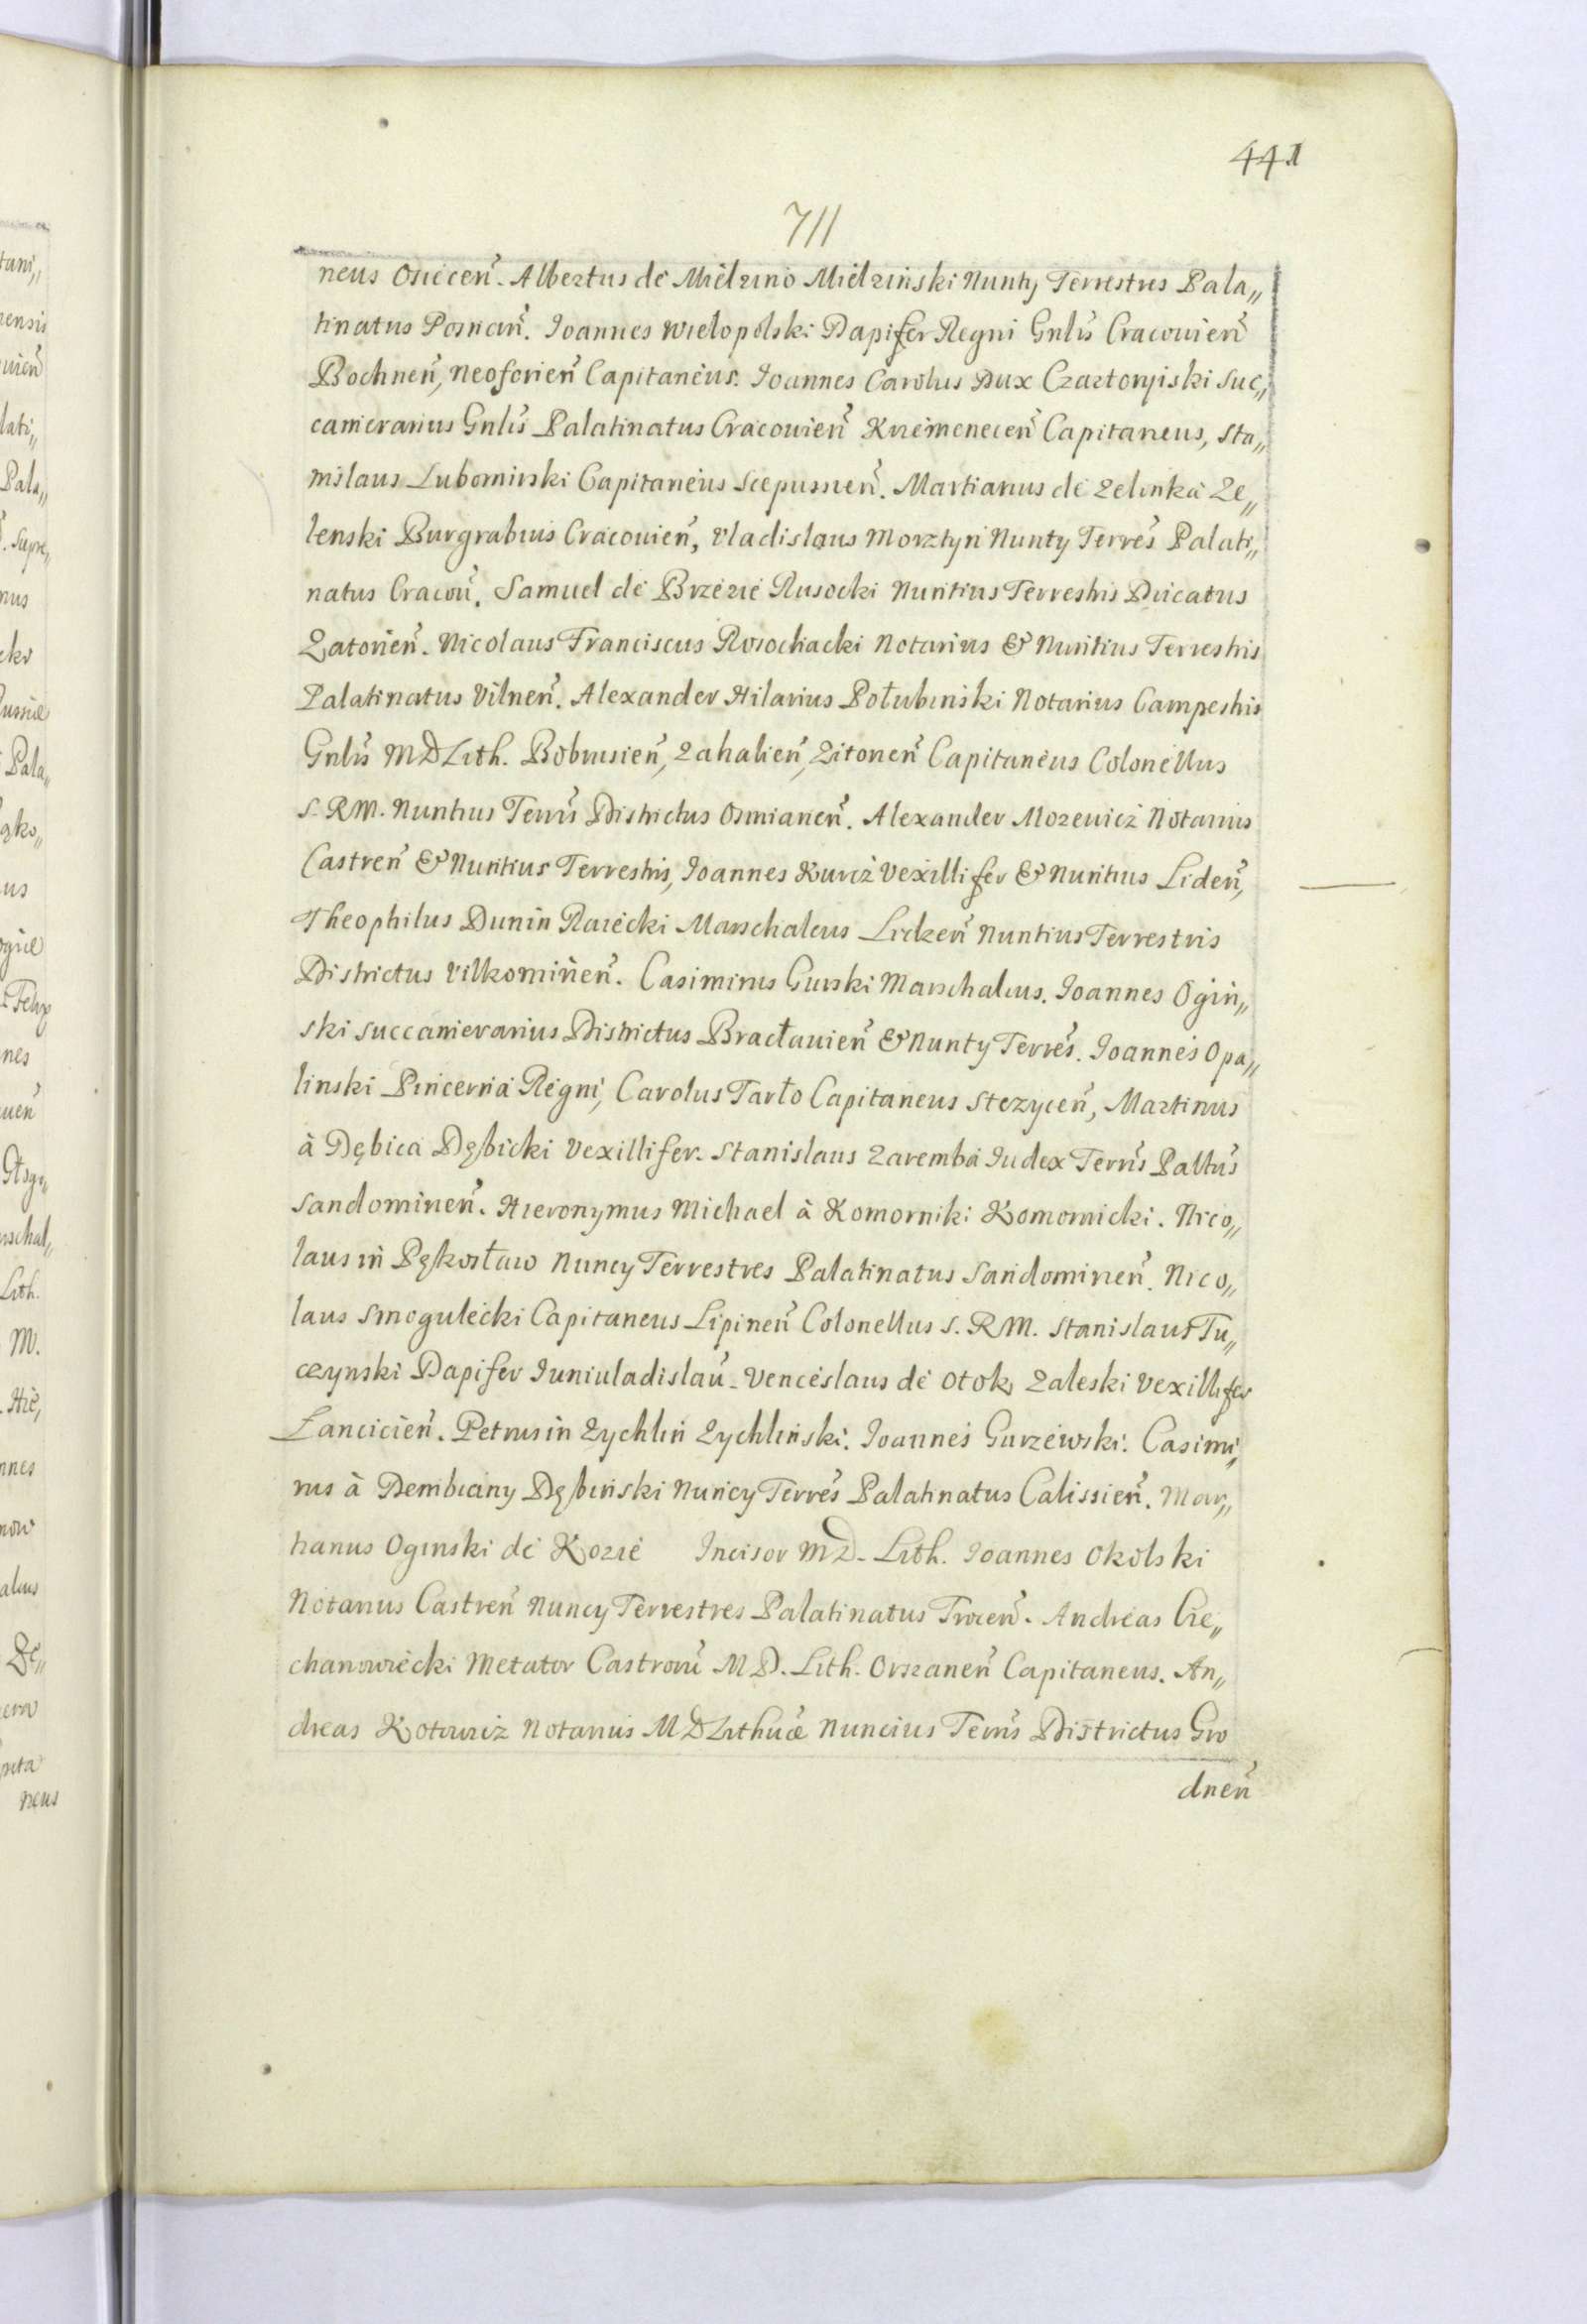 441
711
neus Osiecen̄. Albertus de Mielzino Mielziński Nuntÿ Terrestres Pala„
tinatus Posnan̄. Joannes Wielopolski Dapifer Regni Gnlis Cracouien̄
Bochnen̄, Neoforien̄ Capitaneus. Joannes Carolus Dux Czartoryiski Suc„
camerarius Gnlis Palatinatus Cracouien̄ Krzemenecen̄ Capitaneus, Sta„
nislaus Lubomirski Capitaneus Scepusien̄. Martianus de Zelinka Ze„
lenski Burgrabius Cracouien̄, Vladislaus Morztyn Nunty Terres Palati„
natus Cracou. Samuel de Brzezie Rusocki Nuntius Terrestris Ducatus
Zatorien̄. Nicolaus Franciscus Rosochacki Notarius & Nuntius Terrestris
Palatinatus Vilnen̄. Alexander Hilarius Połubinski Notarius Campestris
Gnlis MDLith. Bobrusien̄, Zahalien̄, Zitonen̄ Capitaneus Colonellus
S. RM. Nuntius Terris Districtus Osmianen̄. Alexander Mozewicz Notarius
Castren̄ & Nuntius Terrestris, Joannes Kurcz Vexillifer & Nuntius Liden̄,
Theophilus Dunin Raiecki Marschalcus Lidzen̄ Nuntius Terrestris
Districtus Vilkomiren̄. Casimirus Gurski Marschalcus. Joannes Ogin„
ski Succamerarius Districtus Bracłauien̄ & Nunty Terres. Joannes Opa„
linski Pincerna Regni, Carolus Tarło Capitaneus Stezycen̄, Martinus
à Dębica Dębicki Vexillifer. Stanislaus Zaremba Iudex Terris Palltus
Sandomiren̄. Hieronymus Michael à Komorniki Komornicki. Nico„
laus in Pękosław Nuncy Terrestres Palatinatus Sandomiren̄. Nico„
laus Smogulecki Capitaneus Lipinen̄ Colonellus S. RM. Stanislaus Tu„
czynski Dapifer Iuniuladislau. Venceslaus de Otok Zaleski Vexillifer
Lancicien̄. Petrus in Zychlin Zychlinski. Joannes Gurzewski. Casimi„
rus à Dembiany Dębinski Nuncy Terres Palatinatus Calissien̄. Mar„
tianus Oginski de Kozie Incisor MD. Lith. Joannes Okolski
Notarius Castren̄ Nuncy Terrestres Palatinatus Trocen̄. Andreas Cie„
chanowiecki Metator Castrorū M D. Lith. Orszanen̄ Capitaneus. An„
dreas Kotowicz Notarius MDLithuæ Nuncius Terris Districtus Gro
dnen̄